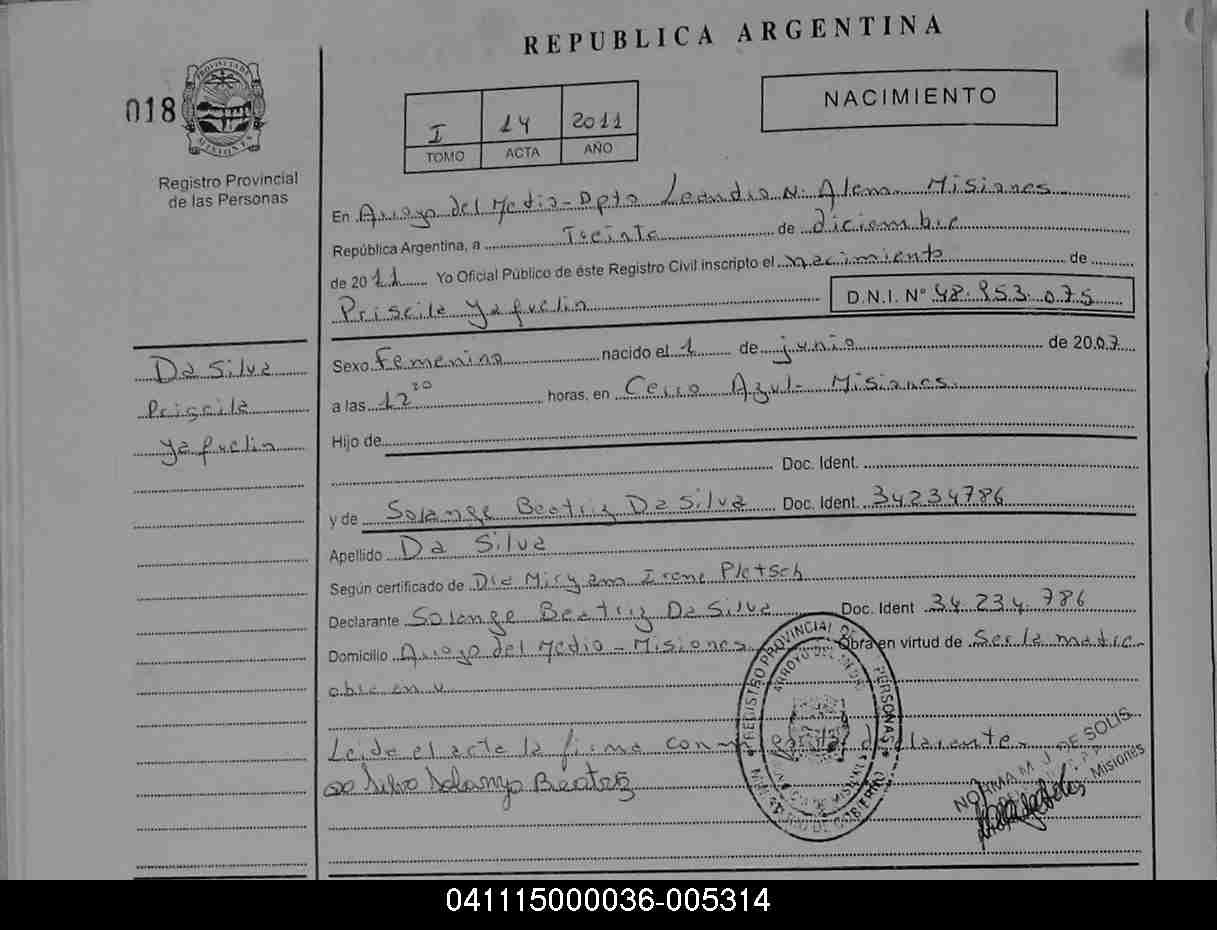 REPUBLICA ARGENTINA
018
PROVINCIA DE MISIONES
Registro Provincial
de las Personas
I 14 2011
TOMO ACTA AÑO
NACIMIENTO
En Arroyo del Medio - Dpto Leandro N. Alem - Misiones
República Argentina, a Treinta de diciembre
de 2011 Yo Oficial Público de éste Registro Civil inscripto el nacimiento de
Priscila Yaquelin D.N.I. N° 48.953.075
Da Silva
Priscila
Yaquelin
Sexo Femenino nacido el 1 de junio de 2007
a las 12 30 horas, en Cerro Azul - Misiones.
Hijo de
Doc. Ident.
y de Solange Beatriz Da Silva Doc. Ident. 34234786
Apellido Da Silva
Según certificado de Dra Miryam Irene Pletsch
Declarante Solange Beatriz Da Silva Doc. Ident 34.234.786
Domicilio Arroyo del Medio - Misiones Obra en virtud de Ser la madre
Leida el acta la firma conmigo la declarante.
Da Silva Solange Beatriz
REGISTRO PROVINCIAL DE PERSONAS
ARROYO DEL MEDIO
MINISTERIO DE GOBIERNO
NORMA M. J. DE SOLIS
Misiones
041115000036-005314